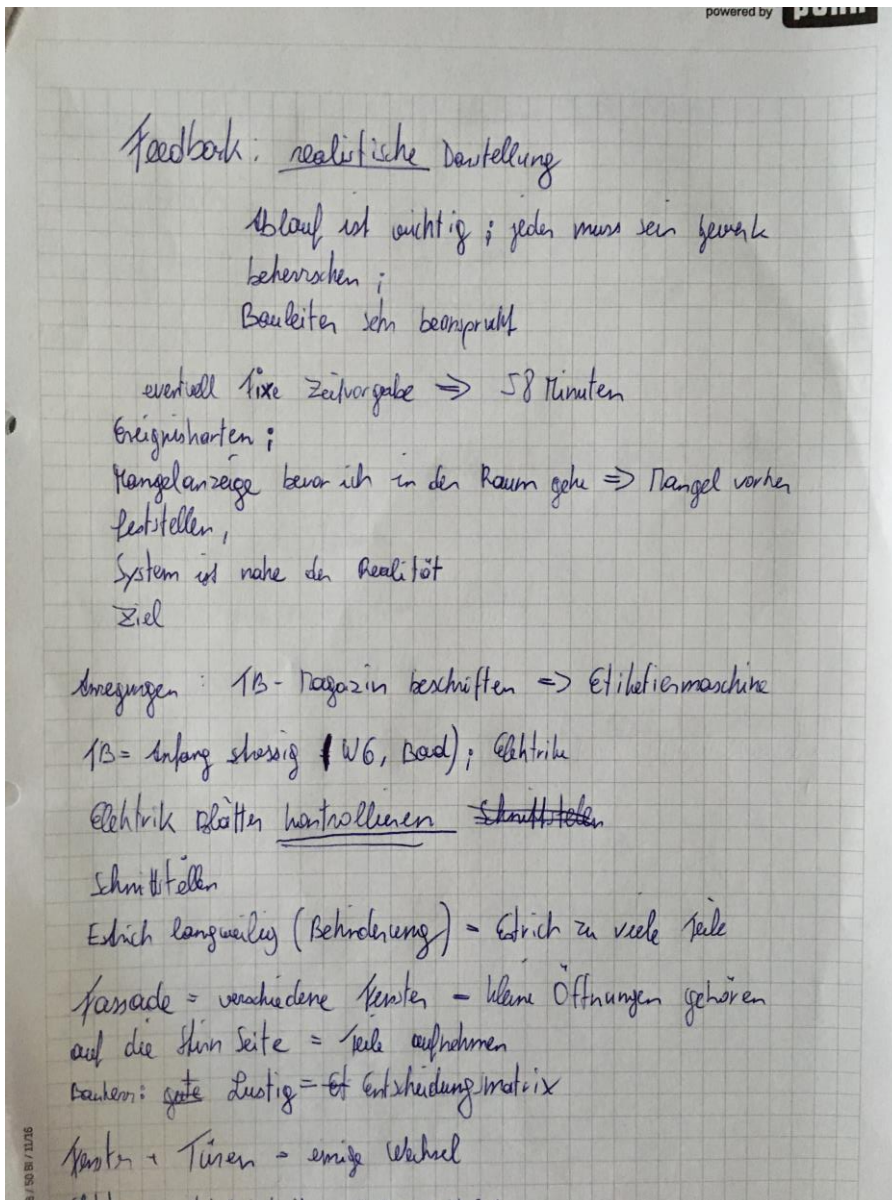 powered by
Feedback: realistische Darstellung
Ablauf ist wichtig; jeder muss sein Gewerk
beherrschen;
Bauleiter sehr beansprucht
eventuell fixe Zeitvorgabe => 58 Minuten
Ereigniskarten;
Mangelanzeige bevor ich in den Raum gehe => Mangel vorher
feststellen,
System ist nahe der Realität
Ziel
Anregungen: TB-Magazin beschriften => Etiketiermaschine
TB = Anfang stressig (WG, Bad); Elektrik
Elektrik Blätter kontrollieren Schnittstellen
Schnittstellen
Estrich langweilig (Behinderung) = Estrich zu viele Teile
Fassade = verschiedene Fenster - kleine Öffnungen gehören
auf die Stirn Seite = Teile aufnehmen
Bauherr: gute Lustig = Entscheidungsmatrix
Fenster + Türen = einige Wechsel
/ 50 Bl / 11/16